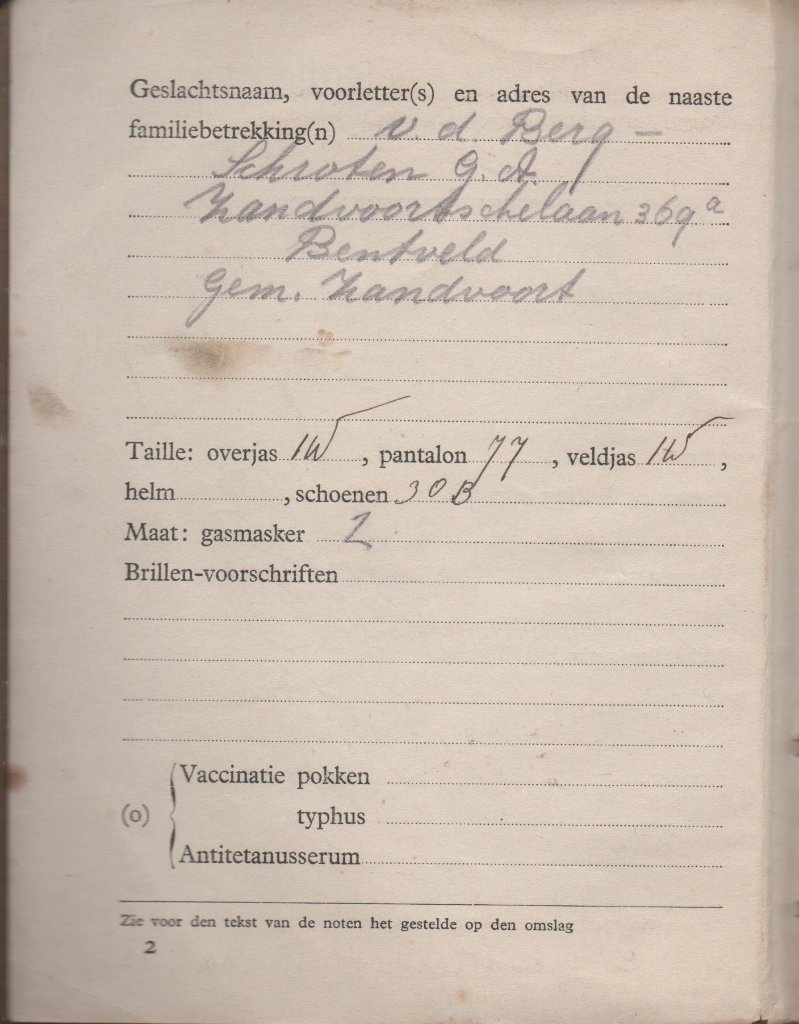 Geslachtsnaam, voorletter(s) en adres van de naaste
familiebetrekking(n) v. d. Berg –
Schroten G. A.
Zandvoortschelaan 369a
Bentveld
Gem. Zandvoort
Taille: overjas, pantalon 77, veldjas,
helm, schoenen 30 B
Maat: gasmasker 2
Brillen-voorschriften
(o) Vaccinatie pokken
typhus
Antitetanusserum
Zie voor den tekst van de noten het gestelde op den omslag
2